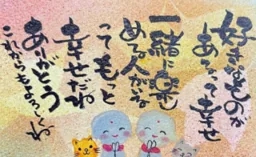 好きなものが
あるって幸せ
一緒に楽し
める人がいる
ってもっと
幸せだね
ありがとう
これからもよろしくね